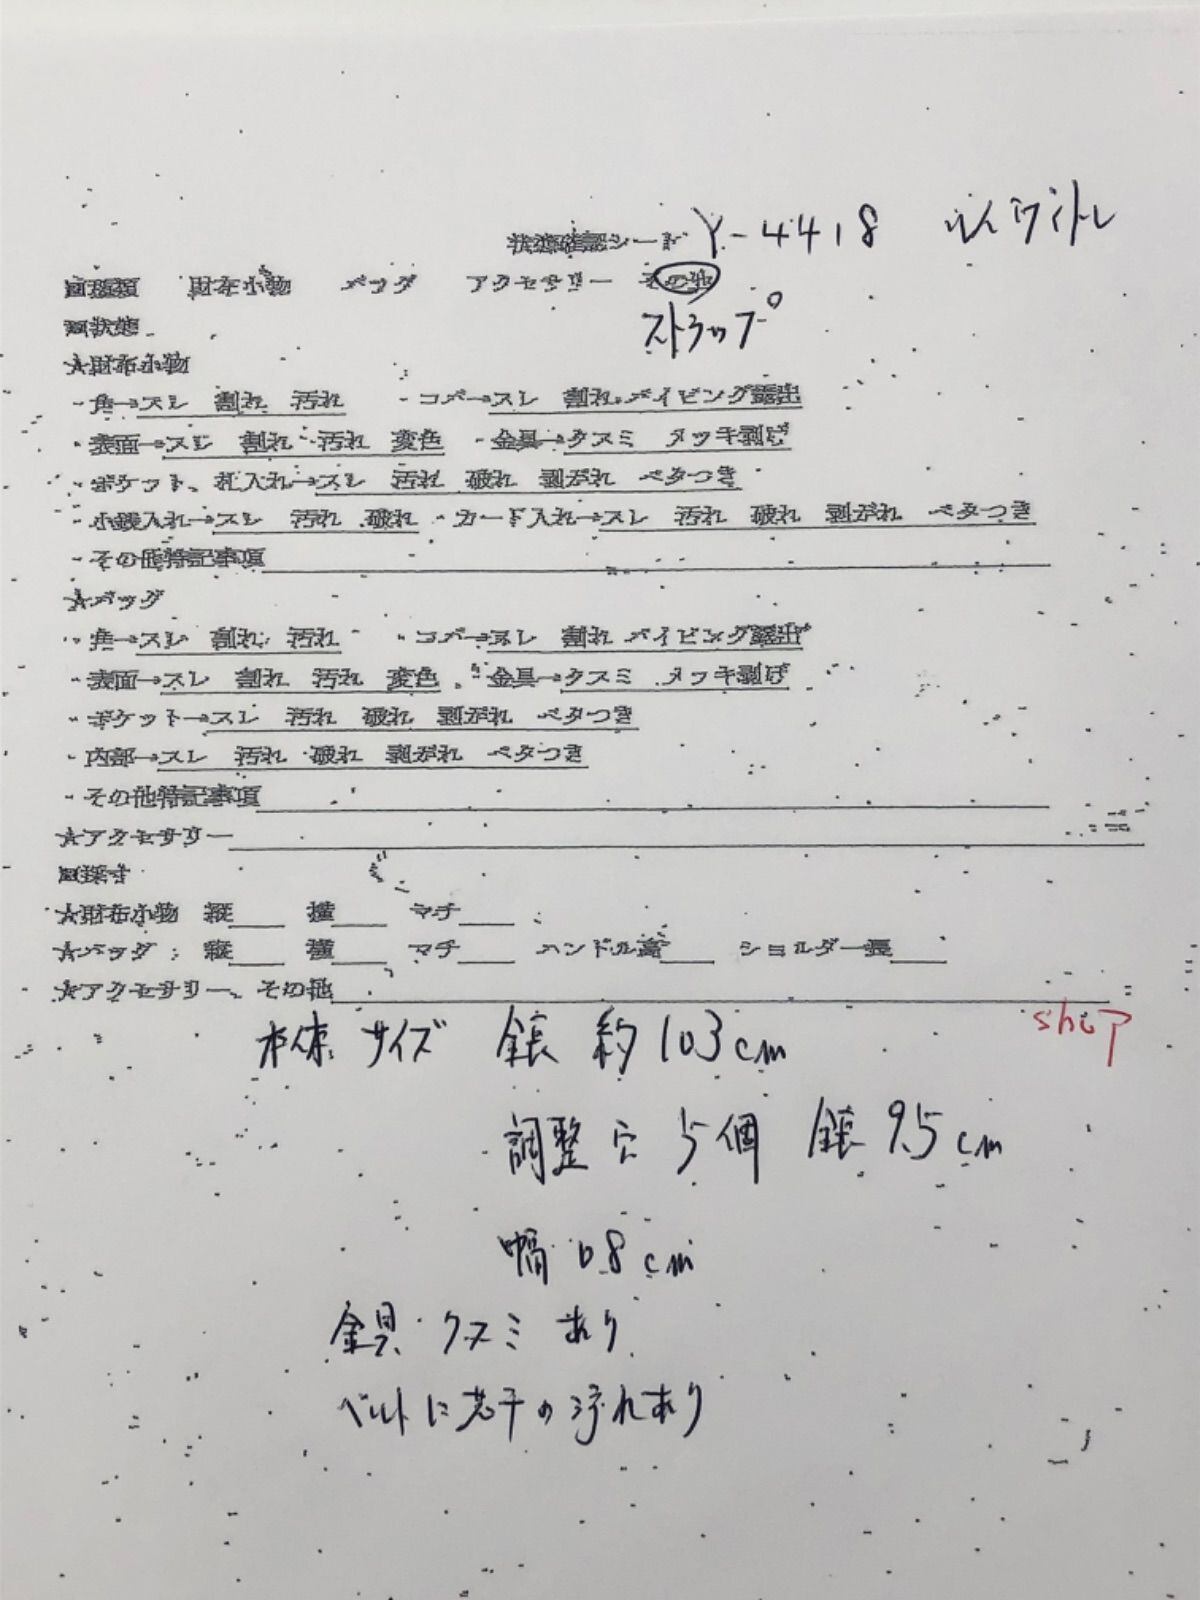 状態確認シード Y-4418 ルイヴィトン
■種類 財布小物 バッグ アクセサリー その他
ストラップ
■状態
★財布小物
・角→スレ 割れ 汚れ ・コバ→スレ 割れ パイピング露出
・表面→スレ 割れ 汚れ 変色 ・金具→クスミ メッキ剥げ
・ポケット、札入れ→スレ 汚れ 破れ 剥がれ ベタつき
・小銭入れ→スレ 汚れ 破れ ・カード入れ→スレ 汚れ 破れ 剥がれ ベタつき
・その他特記事項
★バッグ
・角→スレ 割れ 汚れ ・コバ→スレ 割れ パイピング露出
・表面→スレ 割れ 汚れ 変色 ・金具→クスミ メッキ剥げ
・ポケット→スレ 汚れ 破れ 剥がれ ベタつき
・内部→スレ 汚れ 破れ 剥がれ ベタつき
・その他特記事項
★アクセサリー
■採寸
★財布小物 縦 横 マチ
★バッグ: 縦 横 マチ ハンドル高 ショルダー長
★アクセサリー、その他
shop
本体サイズ 約103cm
調整穴 5個 9.5cm
幅 0.8cm
金具 クスミ あり
ベルトに若干の汚れあり